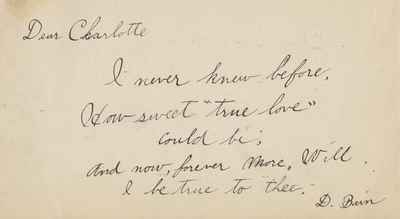 Dear Charlotte
I never knew before,
How sweet "true love"
could be;
And now, forever more, Will
I be true to thee.
D.